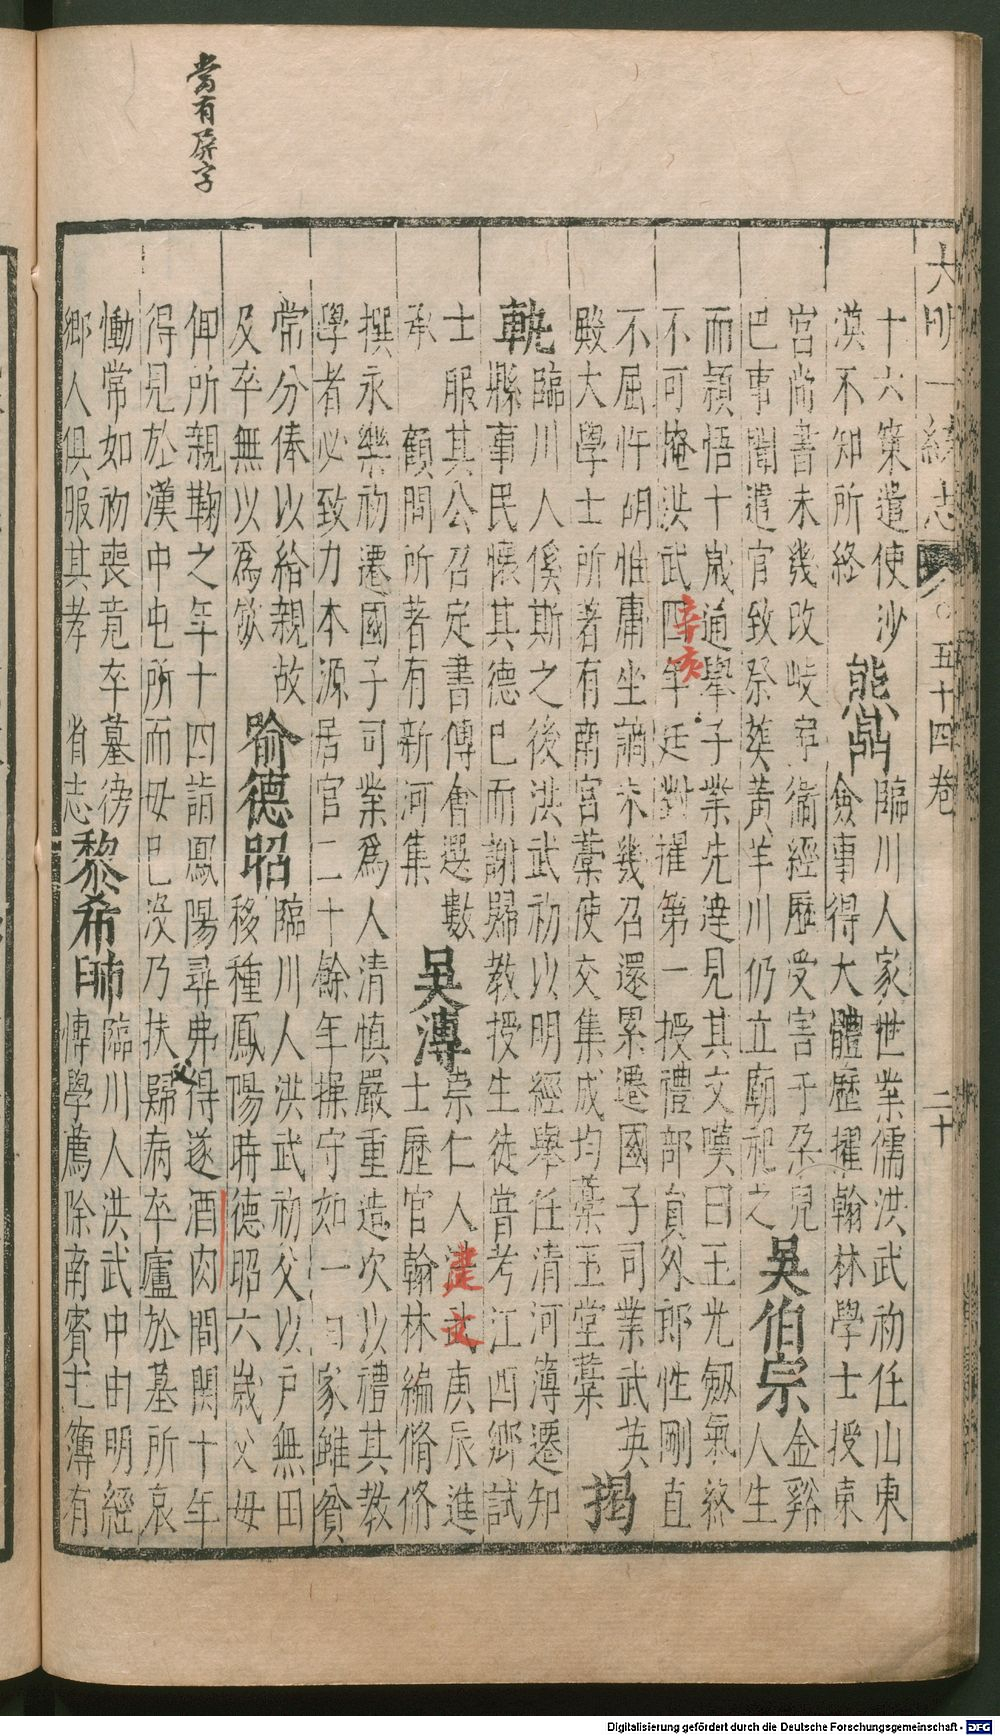 大明一統志 五十四卷 二十
十六策遣使沙
漠不知所終
熊鼎
臨川人家世業儒洪武初任山東
僉事得大體歷擢翰林學士授東
宮尚書未幾改岐寧衛經歷受害于朶兒
巴事聞遣官致祭葬黃羊川仍立廟祀之
吳伯宗
金谿
人生
而穎悟十歲通舉子業先達見其文嘆曰玉光劔氣終
不可掩洪武四年廷對擢第一授禮部員外郎性剛直
辛亥
不屈忤胡惟庸坐謫未幾召還累遷國子司業武英
殿大學士所著有南宮藁使交集成均藁玉堂藁
揭
軏
臨川人傒斯之後洪武初以明經舉任清河簿遷知
縣事民懷其德已而謝歸教授生徒嘗考江西鄉試
士服其公召定書傳會選數
承顧問所著有新河集
吳溥
崇仁人庚辰進
建文
士歷官翰林編脩脩
撰永樂初遷國子司業爲人清慎嚴重造次以禮其教
學者必致力本源居官二十餘年操守如一日家雖貧
常分俸以給親故
及卒無以爲歛
喻德昭
臨川人洪武初父以戶無田
移種鳳陽時德昭六歲父母
俾所親鞠之年十四詣鳳陽尋弗得遂酒肉間關十年
必
當有屏字
得見於漢中屯所而母已沒乃扶歸病卒廬於墓所哀
慟常如初喪竟卒墓傍
鄉人俱服其孝
黎希師
臨川人洪武中由明經
博學薦除南賓主簿有
省志
Digitalisierung gefördert durch die Deutsche Forschungsgemeinschaft - DFG